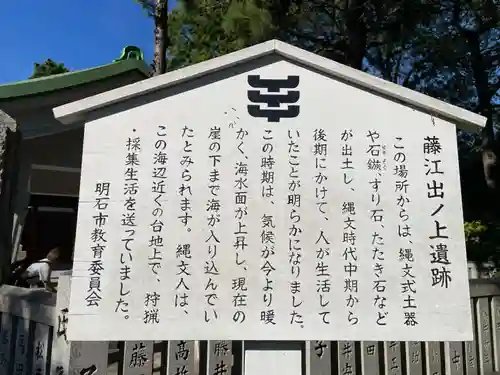 藤江出ノ上遺跡
この場所からは、縄文式土器
や石鏃、すり石、たたき石など
が出土し、縄文時代中期から
後期にかけて、人が生活して
いたことが明らかになりました。
この時期は、気候が今より暖
かく、海水面が上昇し、現在の
崖の下まで海が入り込んでい
たとみられます。縄文人は、
この海辺近くの台地上で、狩猟
・採集生活を送っていました。
明石市教育委員会